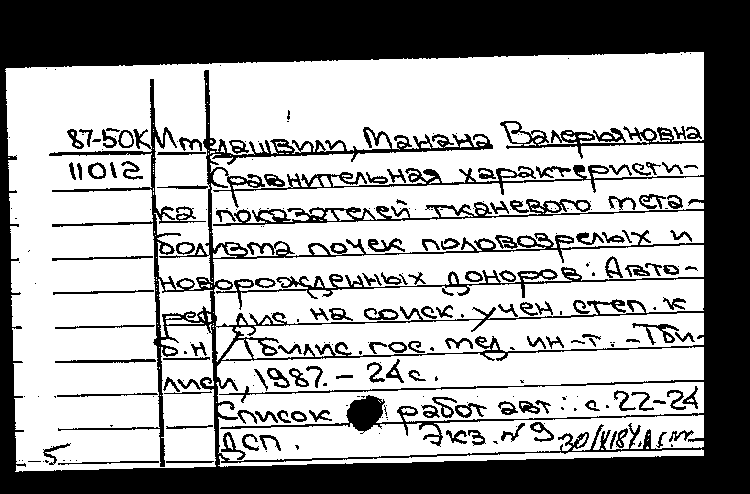 87-50К Мтелашвили, Манана Валерьяновна
11012 Сравнительная характеристи-
ка показателей тканевого мета-
болизма почек половозрелых и
новорожденных доноров: Авто-
реф. дис. на соиск. учен. степ. к.
б.н. / Тбилис. гос. мед. ин-т. - Тби-
лиси, 1987. - 24 с.
Список работ авт.: с. 22-24
ДСП. Экз. №9
5